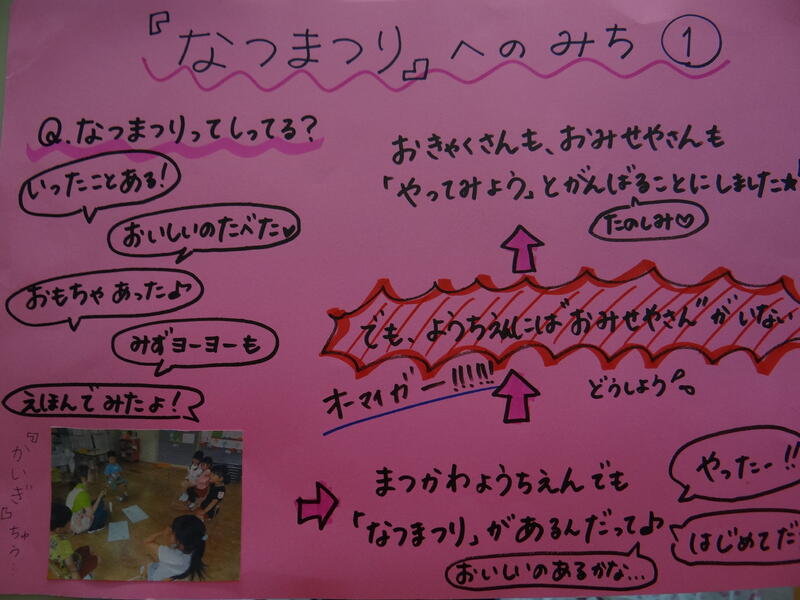 『なつまつり』へのみち①
Q.なつまつりってしってる?
いったことある!
おいしいのたべた♡
おもちゃあったよ♪
みずヨーヨーも
えほんでみたよ!
『かいぎ』ちゅう…
まつかわようちえんでも
「なつまつり」があるんだって♪
やったー!!
はじめてだ
おいしいのあるかな…
オーマイガー!!!!!
どうしよう
でも、ようちえんには"おみせやさん"がいない
おきゃくさんも、おみせやさんも
「やってみよう」とがんばることにしました☆
たのしみ♡